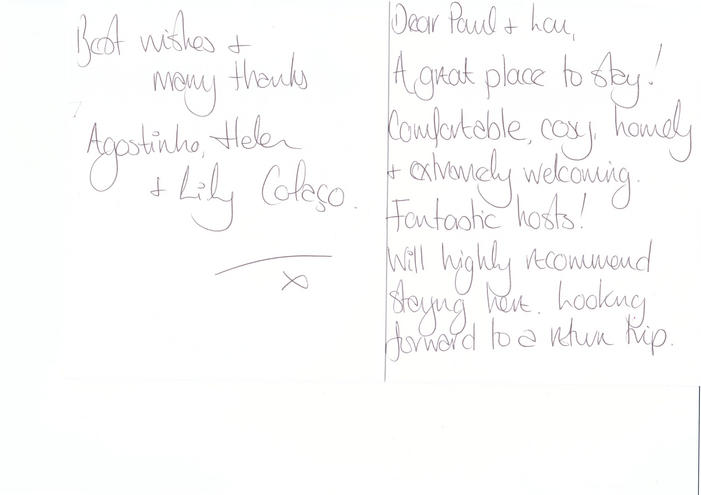 Best wishes +
many thanks
Agostinho, Helen
+ Lily Colaço.
x
Dear Paul + Lou,
A great place to stay!
Comfortable, cosy, homely
+ extremely welcoming.
Fantastic hosts!
Will highly recommend
staying here. Looking
forward to a return trip.